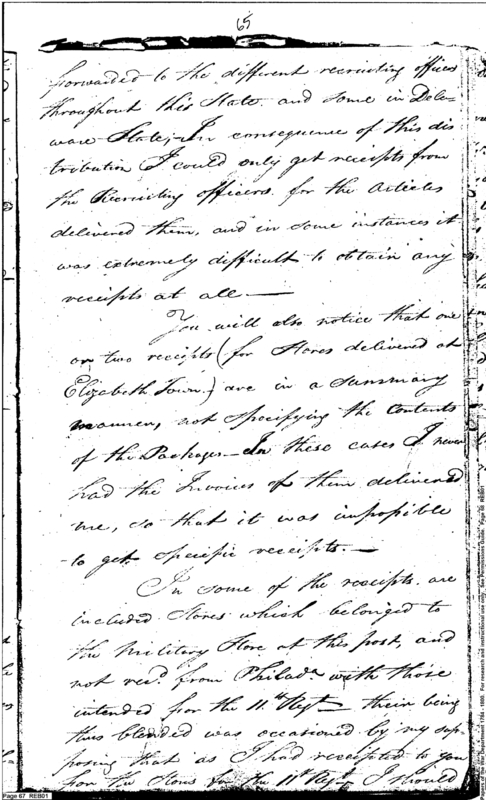 65
forwarded to the different recruiting officers
throughout this State and some in Dela-
ware State,- In consequence of this dis
tribution I could only get receipts from
the Recruiting officers for the Articles
delivered them, and in some instances it
was extremely difficult to obtain any
receipts at all —
You will also notice that one
or two receipts (for Stores delivered at
Elizabeth Town,) are in a Summary
manner, not specifying the Contents
of the Packages — In these cases I never
had the Invoices of them delivered
me, so that it was impossible
to get specific receipts. —
In some of the receipts are
included Stores which belonged to
the Military Store at this post, and
not recd. from Philada with those
intended for the 11th Regt — their being
thus blended was occasioned by my sup-
posing that as I had receipted to you
for the Stores for the 11th Regt, I should
Page 67 REB01
Papers of the War Department 1784 - 1800. For research and instructional use only. See Permissions Guide. Page 66 REB01